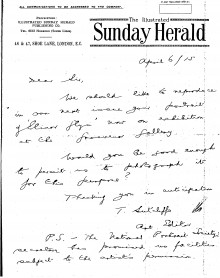 ALL COMMUNICATIONS TO BE ADDRESSED TO THE COMPANY.
ILLUSTRATED SUNDAY HERALD
PUBLISHING CO.
46 & 47, SHOE LANE, LONDON, E.C.
The Illustrated
Sunday Herald
April 6/15
Dear Sir,
We should like to reproduce
in our next issue your portrait
now on exhibition
at the Grosvenor Gallery.
Would you be good enough
to permit us to photograph it
for this purpose?
Thanking you in anticipation
T. Sutcliffe
Art Editor
P.S. – The National Portrait Society's
secretary has promised us facilities
subject to the artist's permission.